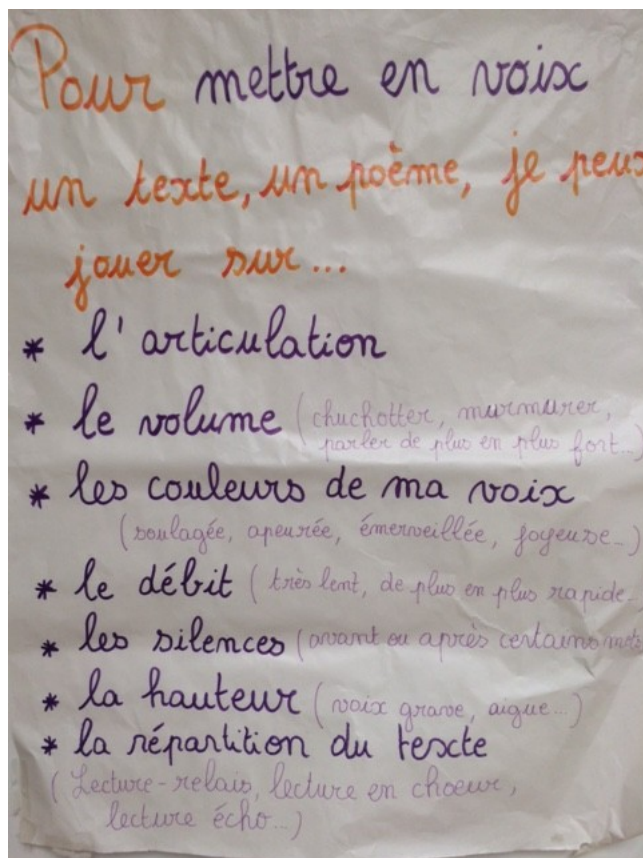 Pour mettre en voix
un texte, un poème, je peux
jouer sur...
* l'articulation
* le volume (chuchotter, murmurer,
parler de plus en plus fort...)
* les couleurs de ma voix
(soulagée, apeurée, émerveillée, joyeuse...)
* le débit (très lent, de plus en plus rapide...
* les silences (avant ou après certains mots
* la hauteur (voix grave, aigue...)
* la répartition du texte
(Lecture-relais, lecture en choeur,
lecture écho...)